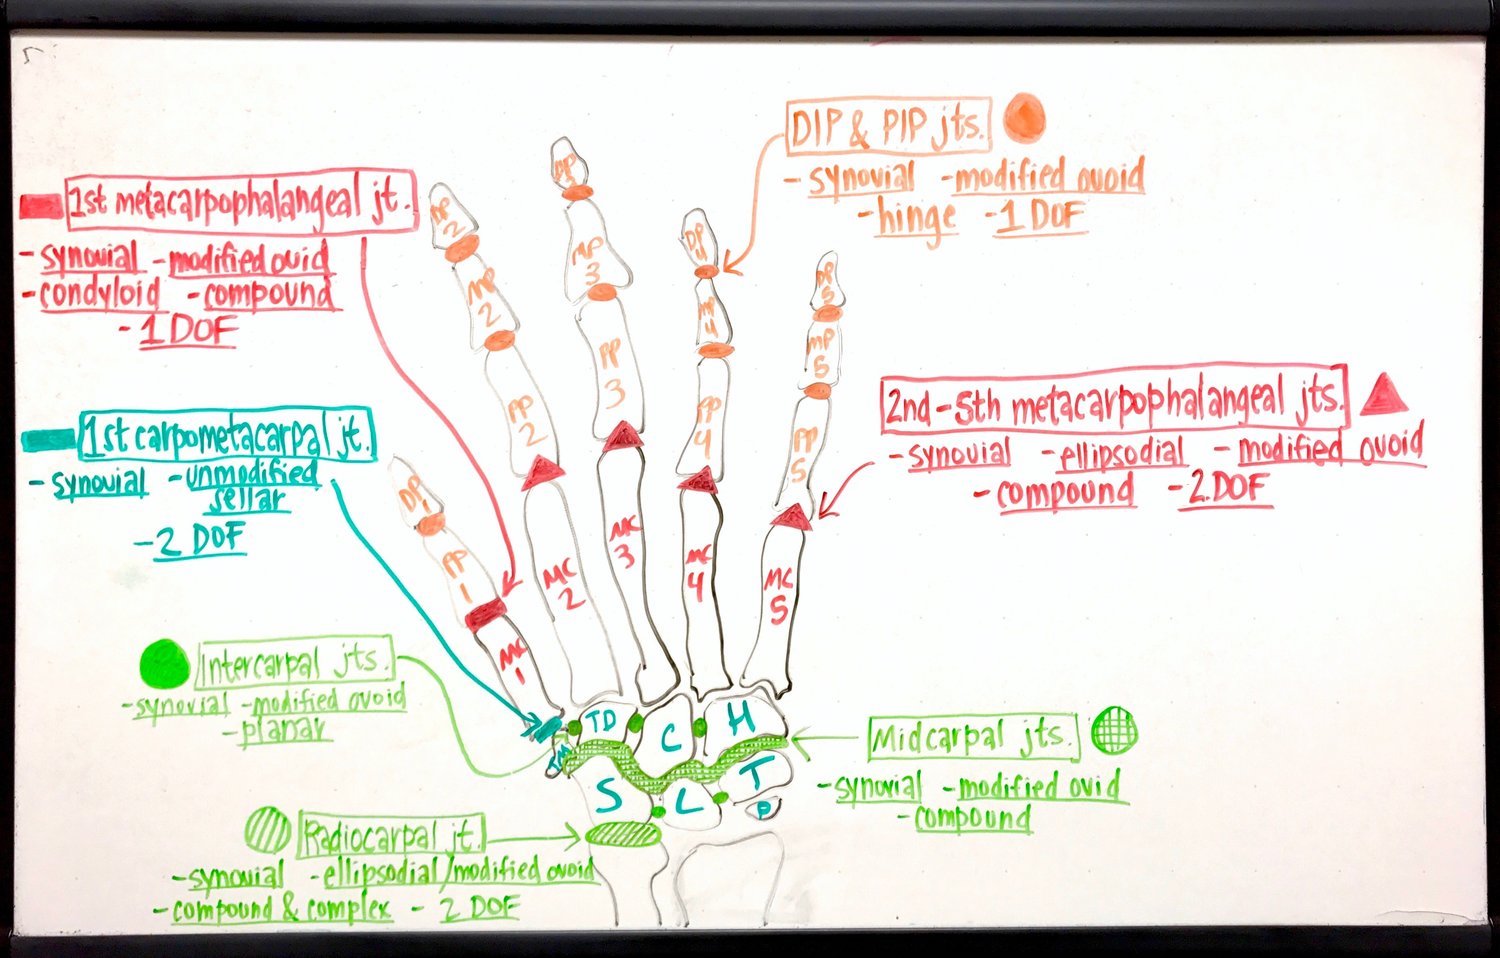 DIP & PIP jts.
- synovial - modified ovoid
- hinge - 1 DOF
1st metacarpophalangeal jt.
- synovial - modified ovid
- condyloid - compound
- 1 DOF
2nd-5th metacarpophalangeal jts.
- synovial - ellipsodial - modified ovoid
- compound - 2 DOF
1st carpometacarpal jt.
- synovial - unmodified
sellar
- 2 DOF
Intercarpal jts.
- synovial - modified ovoid
- planar
Midcarpal jts.
- synovial - modified ovid
- compound
Radiocarpal jt.
- synovial - ellipsodial/modified ovoid
- compound & complex - 2 DOF
DP
1
PP
1
MC
1
DP
2
MP
2
PP
2
MC
2
DP
3
MP
3
PP
3
MC
3
DP
4
MP
4
PP
4
MC
4
DP
5
MP
5
PP
5
MC
5
TD
C
H
TM
S
L
T
P